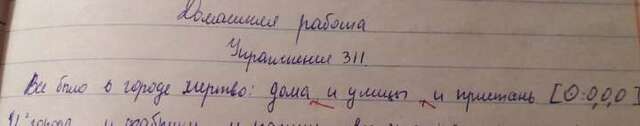 Домашняя работа
Упражнение 311.
Все было в городе мертво: дома и улицы и пристань [О: О, О, О]
города и